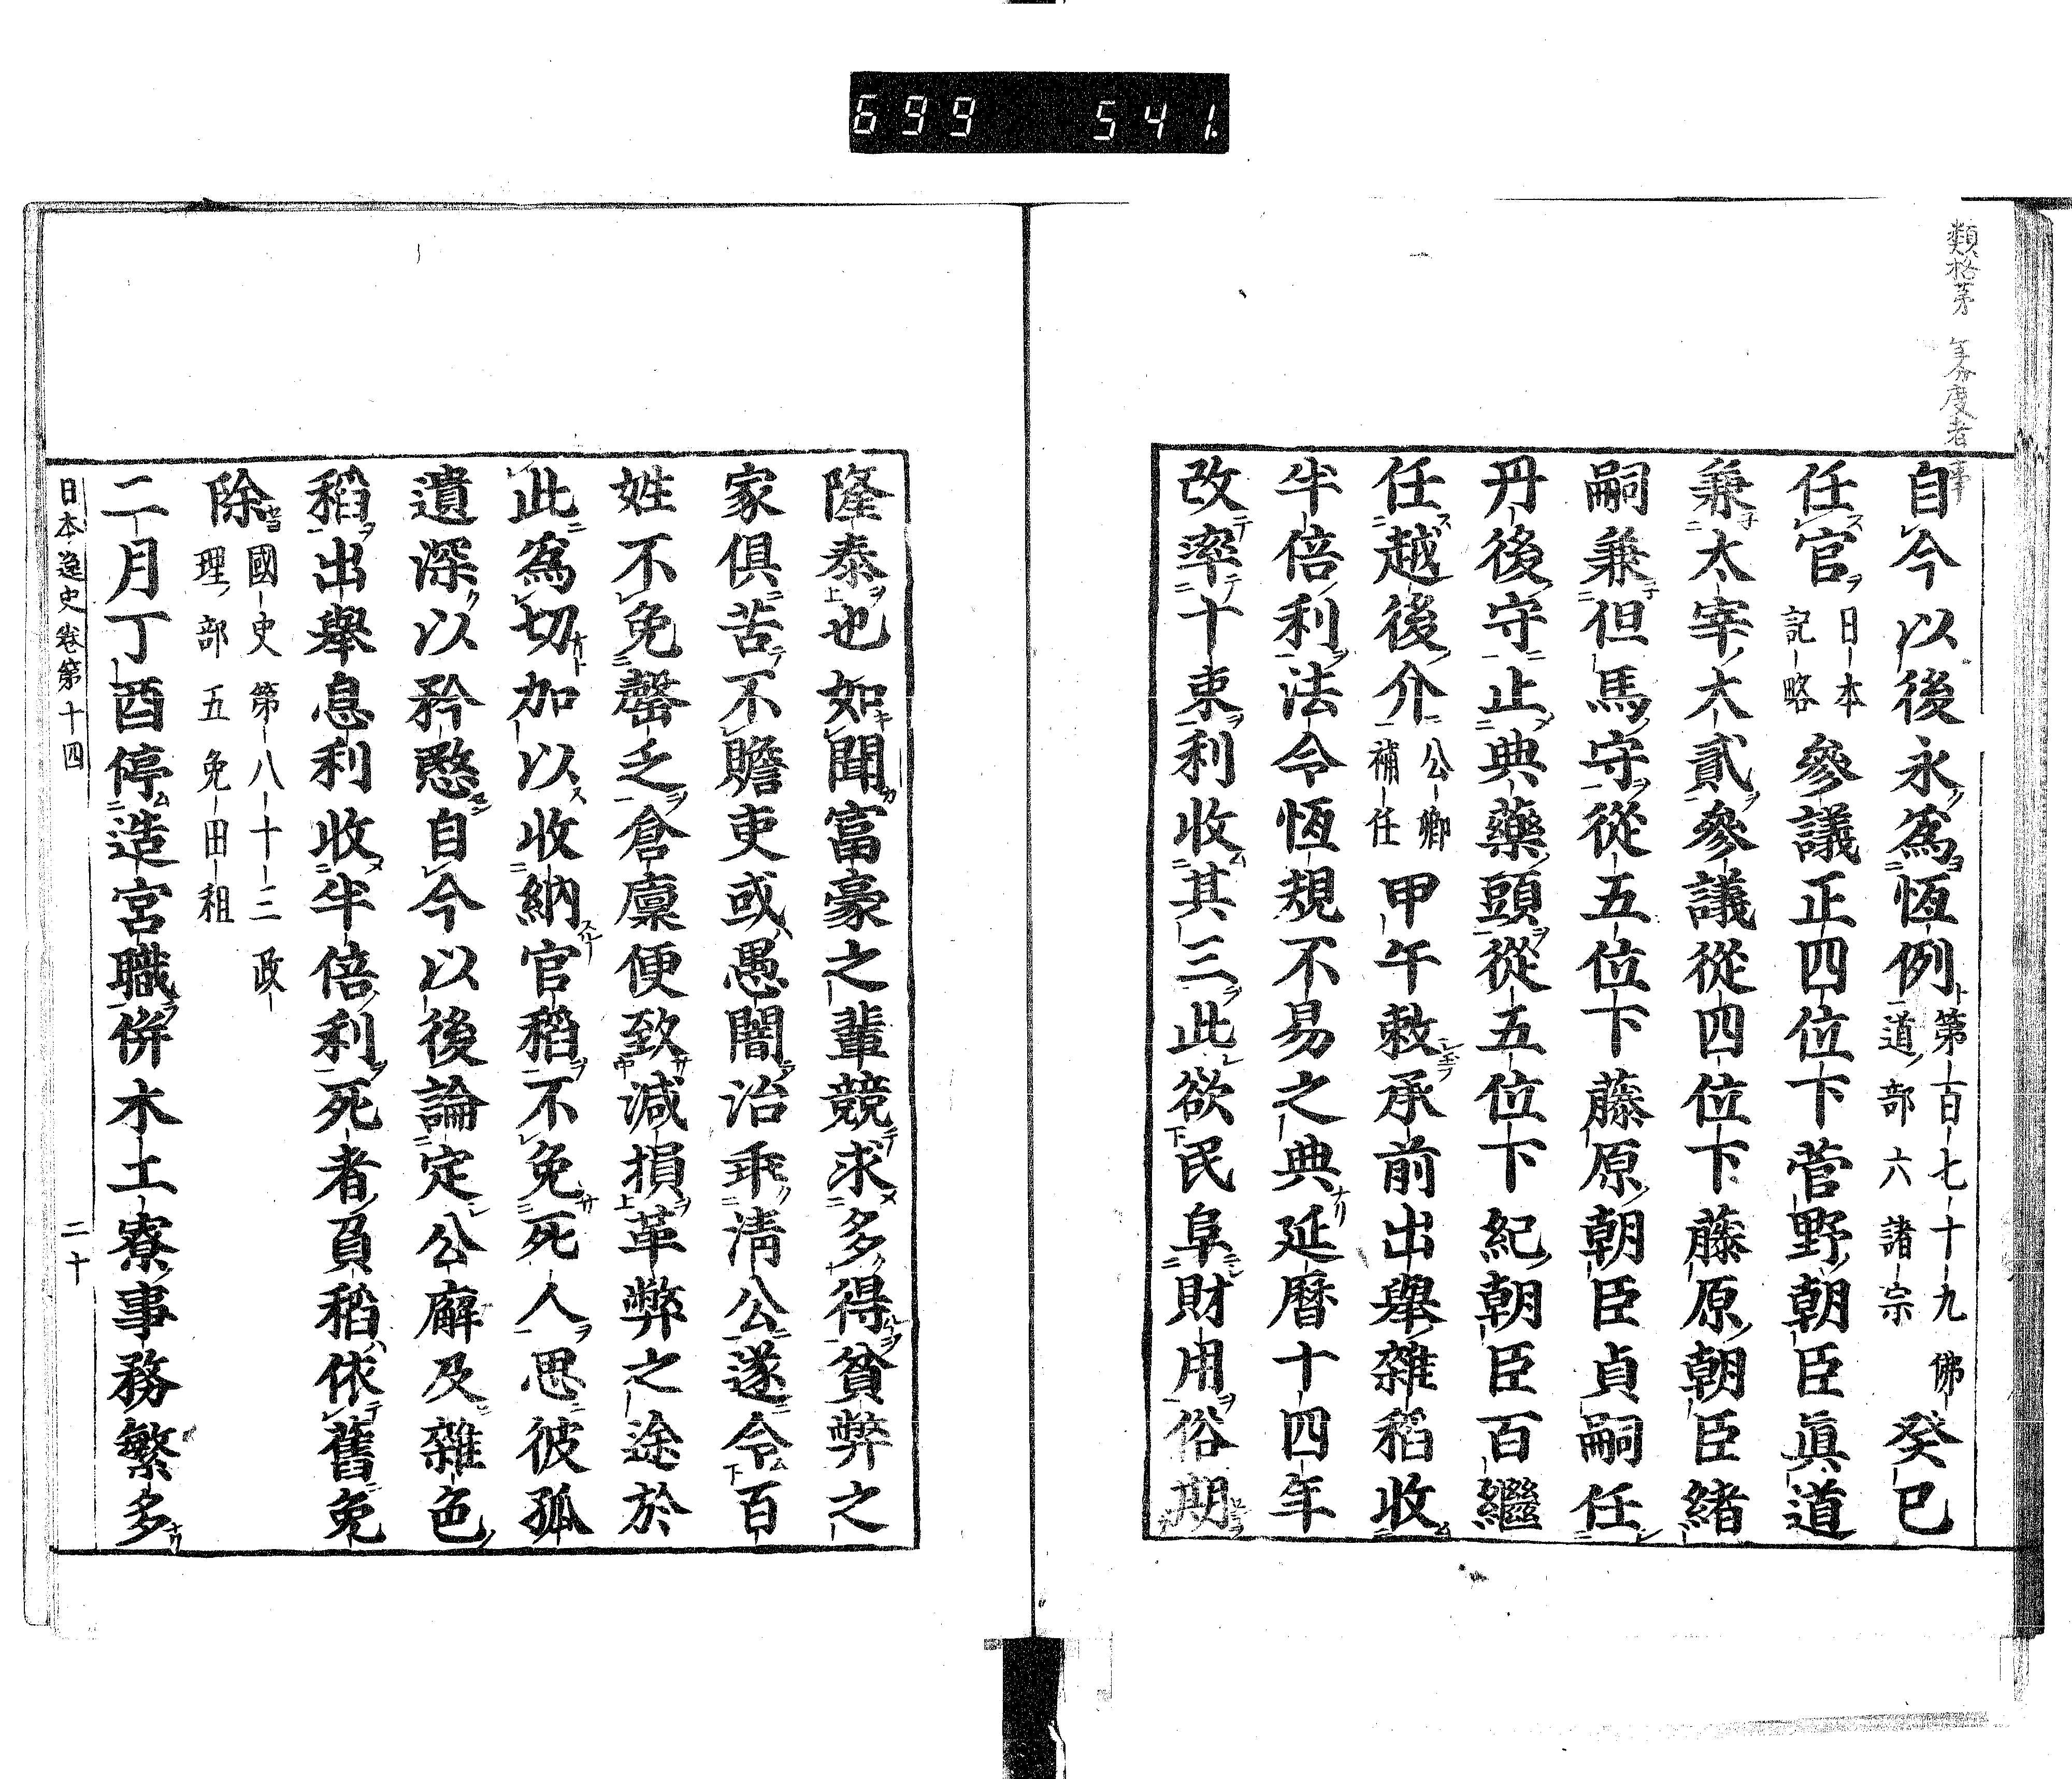 699 541.
類格第 年分度者事
自今以後永爲恆例第百七十九佛道部六諸宗癸巳
任官日本記略參議正四位下菅野朝臣眞道
兼太宰大貳參議從四位下藤原朝臣緒
嗣兼但馬守從五位下藤原朝臣貞嗣任
丹後守止典藥頭從五位下紀朝臣百繼
任越後介公卿補任甲午敕承前出舉雜稻收
半倍利法令恆規不易之典延曆十四年
改率十束利收其三此欲民阜財用俗期
隆泰也如聞富豪之輩競求多得貧弊之
家俱苦不贍吏或愚闇治乖淸公遂令百
姓不免罄乏倉廩便致減損革弊之途於
此爲切加以收納官稻不免死人思彼孤
遺深以矜愍自今以後論定公廨及雜色
稻出舉息利收半倍利死者負稻依舊免
除國史第八十三政理部五免田租
二月丁酉停造宮職併木工寮事務繁多
日本逸史卷第十四 二十